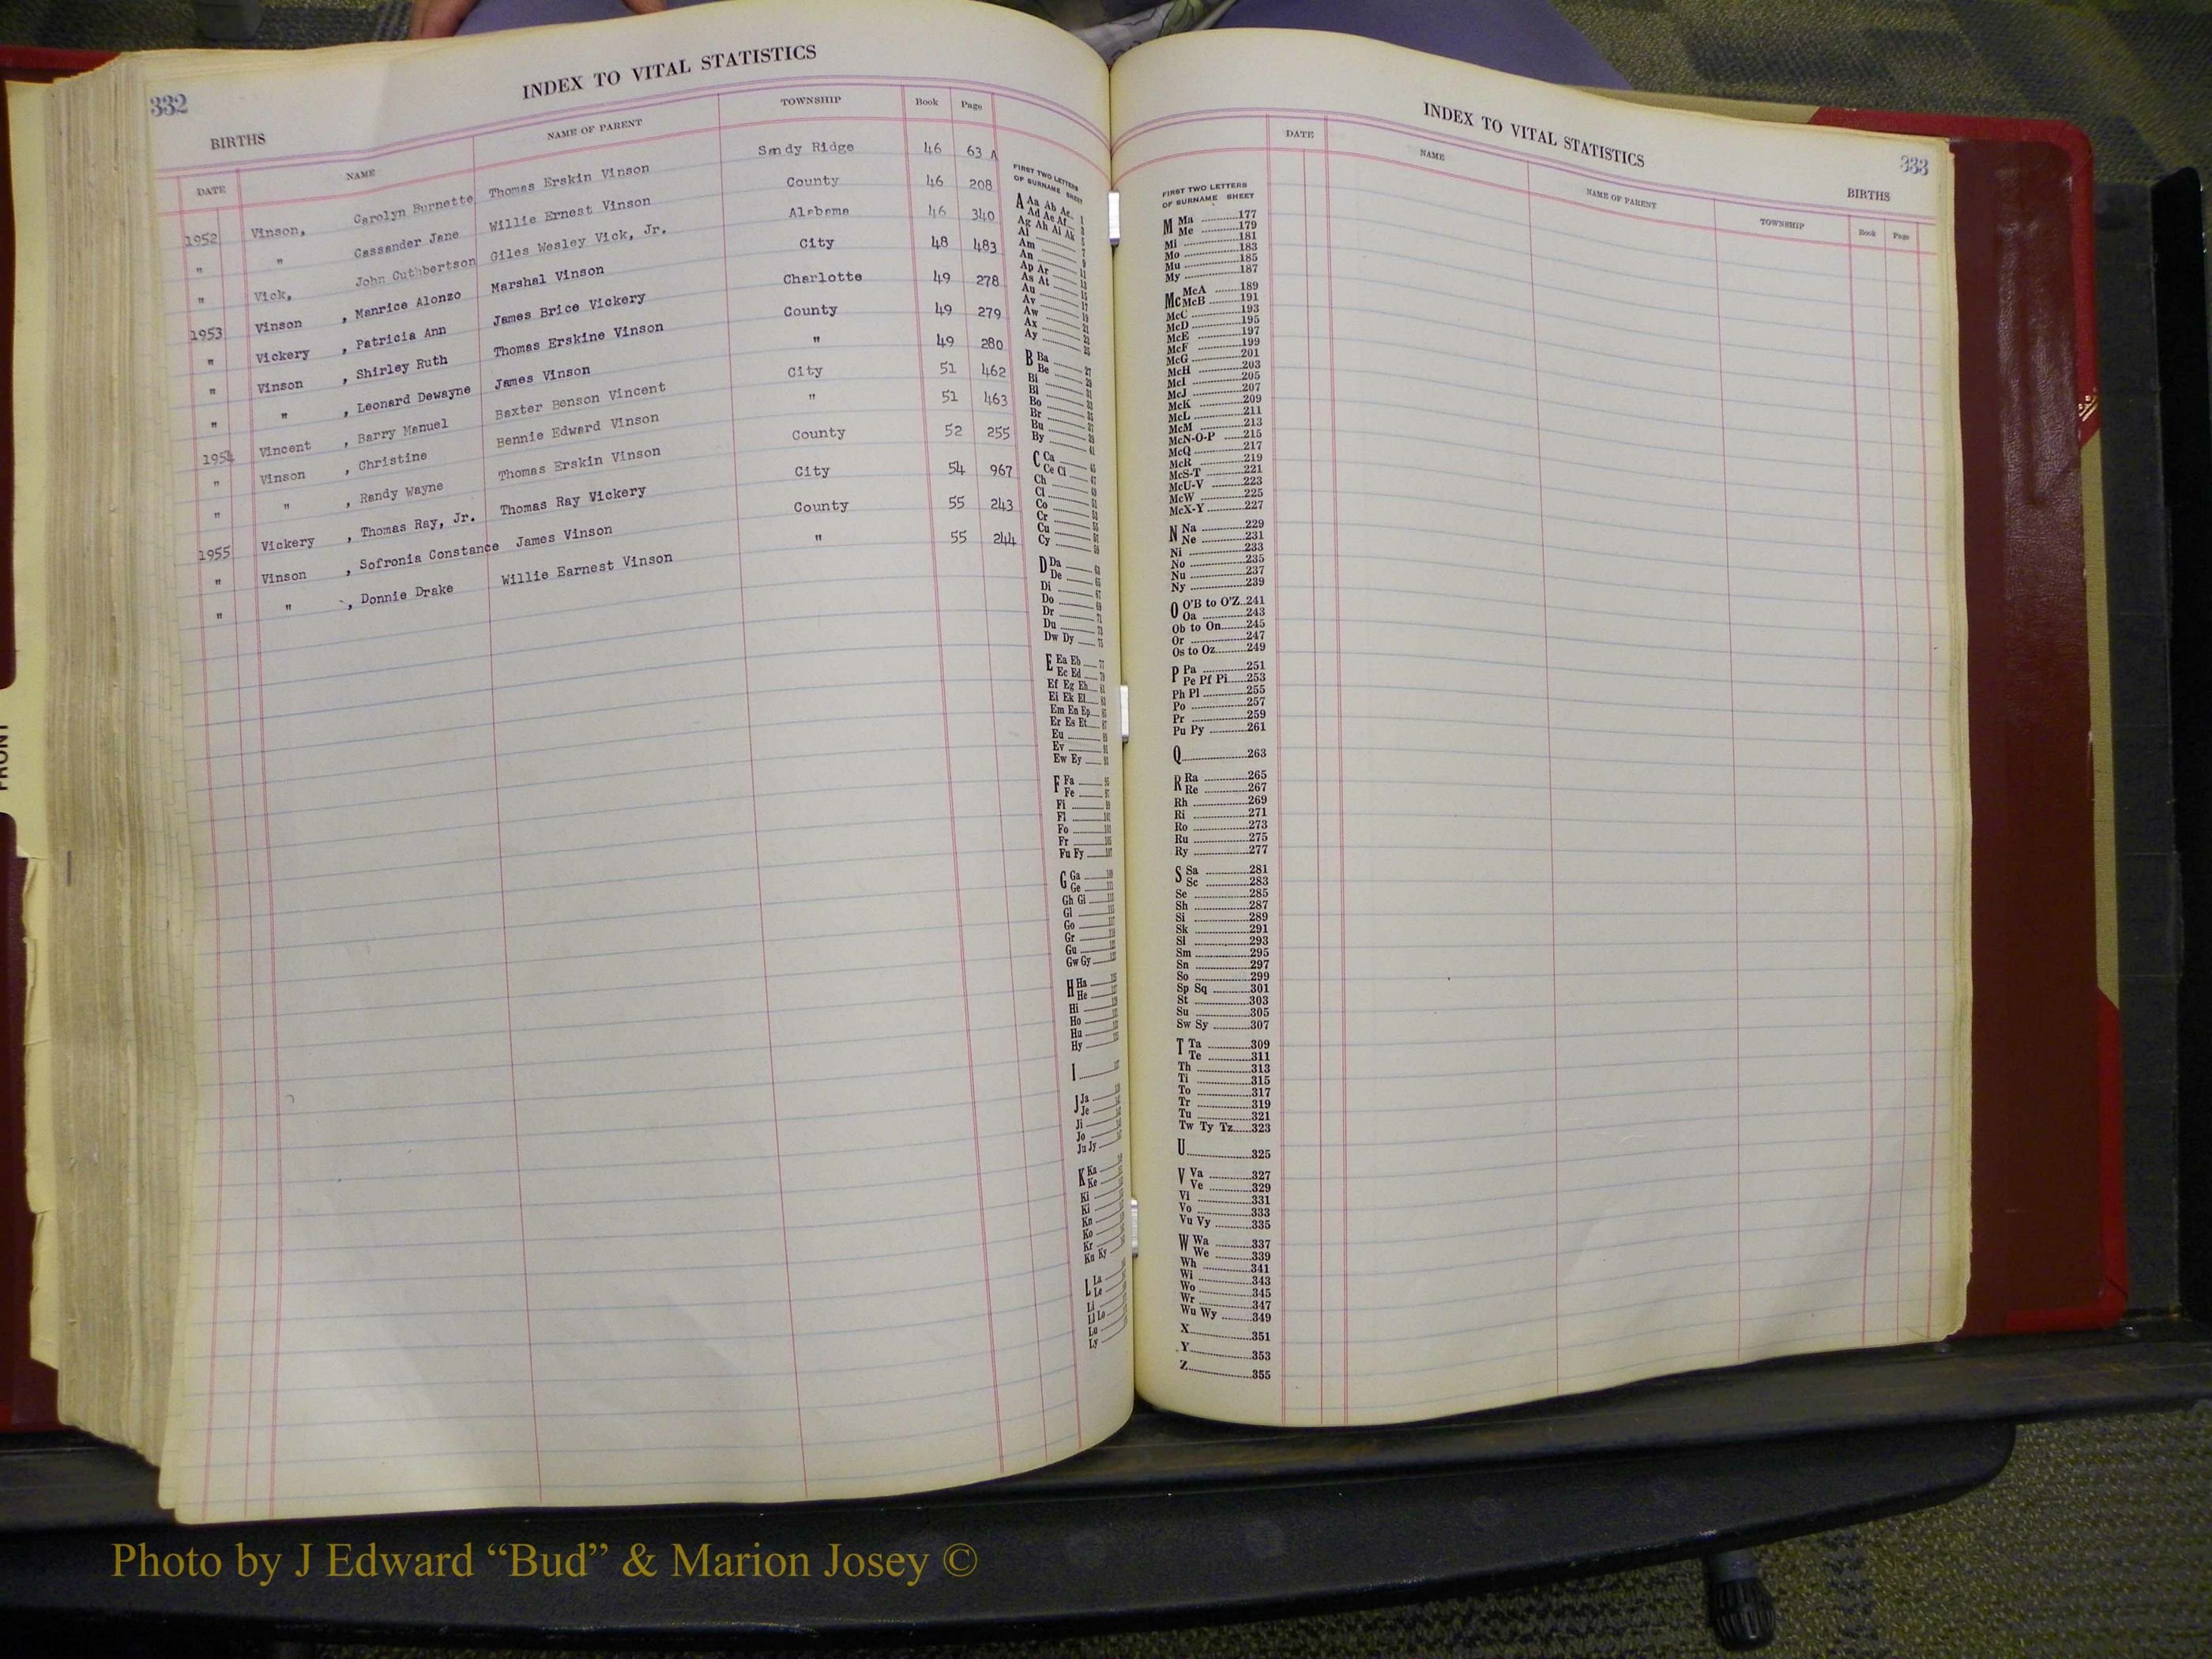 332
INDEX TO VITAL STATISTICS
BIRTHS
DATE NAME NAME OF PARENT TOWNSHIP Book Page
1952 Vinson, Carolyn Burnette Thomas Erskin Vinson Sandy Ridge 46 63 A
" " Cassander Jane Willie Ernest Vinson County 46 208
" Vick, John Cuthbertson Giles Wesley Vick, Jr. Alabama 46 340
1953 Vinson , Manrice Alonzo Marshal Vinson City 48 483
" Vickery , Patricia Ann James Brice Vickery Charlotte 49 278
" Vinson , Shirley Ruth Thomas Erskine Vinson County 49 279
" " , Leonard Dewayne James Vinson " 49 280
1954 Vincent , Barry Manuel Baxter Benson Vincent City 51 462
" Vinson , Christine Bennie Edward Vinson " 51 463
" " , Randy Wayne Thomas Erskin Vinson County 52 255
1955 Vickery , Thomas Ray, Jr. Thomas Ray Vickery City 54 967
" Vinson , Sofronia Constance James Vinson County 55 243
" " , Donnie Drake Willie Earnest Vinson " 55 244
FIRST TWO LETTERS
OF SURNAME SHEET
A Aa Ab Ac
Ad Ae Af
Ag Ah Ai Ak
Al
Am
An
Ap Ar
As At
Au
Av
Aw
Ax
Ay
B Ba
Be
Bi
Bl
Bo
Br
Bu
By
C Ca
Ce Ci
Ch
Cl
Co
Cr
Cu
Cy
D Da
De
Di
Do
Dr
Du
Dw Dy
E Ea Eb
Ec Ed
Ef Eg Eh
Ei Ek El
Em En Ep
Er Es Et
Eu
Ev
Ew Ey
F Fa
Fe
Fi
Fl
Fo
Fr
Fu Fy
G Ga
Ge
Gh Gi
Gl
Go
Gr
Gu
Gw Gy
H Ha
He
Hi
Ho
Hu
Hy
I
J Ja
Je
Ji
Jo
Ju Jy
K Ka
Ke
Ki
Kn
Ko
Kr
Ku Ky
L La
Le
Li
Ll Lo
Lu
Ly
INDEX TO VITAL STATISTICS
333
BIRTHS
DATE NAME NAME OF PARENT TOWNSHIP Book Page
FIRST TWO LETTERS
OF SURNAME SHEET
M Ma 177
Me 179
Mi 181
Mo 183
Mu 185
My 187
Mc McA 189
McB 191
McC 193
McD 195
McE 197
McF 199
McG 201
McH 203
McI 205
McJ 207
McK 209
McL 211
McM 213
McN-O-P 215
McQ 217
McR 219
McS-T 221
McU-V 223
McW 225
McX-Y 227
N Na 229
Ne 231
Ni 233
No 235
Nu 237
Ny 239
O O'B to O'Z 241
Oa 243
Ob to On 245
Or 247
Os to Oz 249
P Pa 251
Pe Pf Pi 253
Ph Pl 255
Po 257
Pr 259
Pu Py 261
Q 263
R Ra 265
Re 267
Rh 269
Ri 271
Ro 273
Ru 275
Ry 277
S Sa 281
Sc 283
Se 285
Sh 287
Si 289
Sk 291
Sl 293
Sm 295
Sn 297
So 299
Sp Sq 301
St 303
Su 305
Sw Sy 307
T Ta 309
Te 311
Th 313
Ti 315
To 317
Tr 319
Tu 321
Tw Ty Tz 323
U 325
V Va 327
Ve 329
Vi 331
Vo 333
Vu Vy 335
W Wa 337
We 339
Wh 341
Wi 343
Wo 345
Wr 347
Wu Wy 349
X 351
Y 353
Z 355
FRONT
Photo by J Edward “Bud” & Marion Josey ©